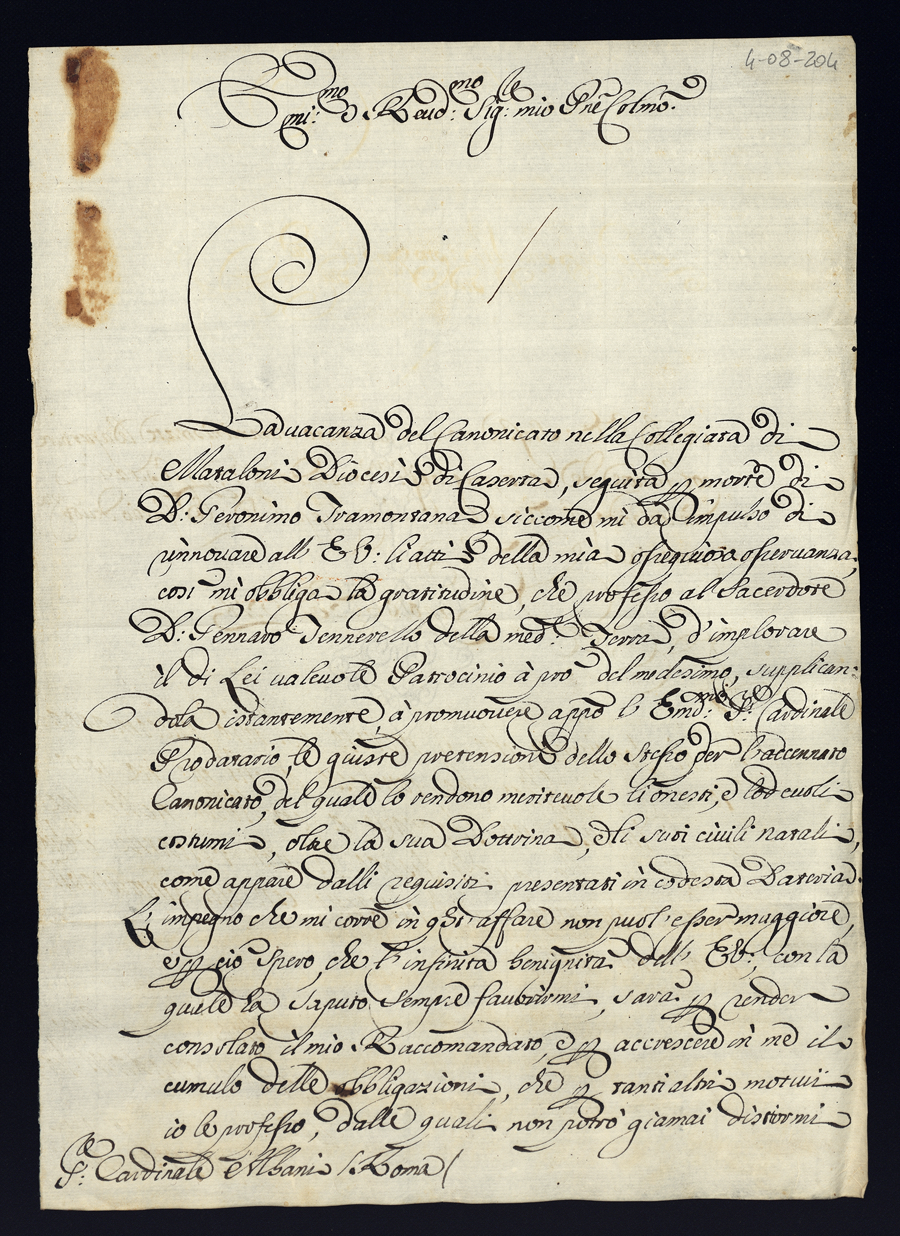 4-08-204
Emi:mo e Reud:mo Sig:re mio Pne Colmo.
La uacanza del Canonicato nella Collegiata di
Mataloni Diocesi di Caserta, seguita p morte di
D: Geronimo Tramontana siccome mi dà impulso di
rinnouare all' EV: li atti della mia ossequiosa osseruanza,
cosi mi obbliga la gratitudine, che professo al Sacerdote
D: Gennaro Tennerello della med.a Terra, d'implorare
il di Lei valeuole Patrocinio à prò del medesimo, supplican:
dola istantemente, à promuouere appo l' Emo: Sr: Cardinale
Prodatario, le giuste pretensioni dello stesso per l'accennato
Canonicato, del quale lo rendono meriteuole li onesti, e lodeuoli
costumi, oltre la sua Dottrina, e li suoi ciuili natali,
come appare dalli requisiti presentati in codesta Dataria.
L' impegno che mi corre in qsto affare non puol' esser maggiore,
e p ciò spero, che l' infinita benignità dell' EV:, con la
quale hà saputo sempre fauorirmi, sarà p render
consolato il mio Raccomandato, e p accrescere in me il
cumulo delle obbligazioni, che p tanti altri motiui
io le professo, dalle quali non potrò giamai distormi
S:re Cardinale Albani / Roma /